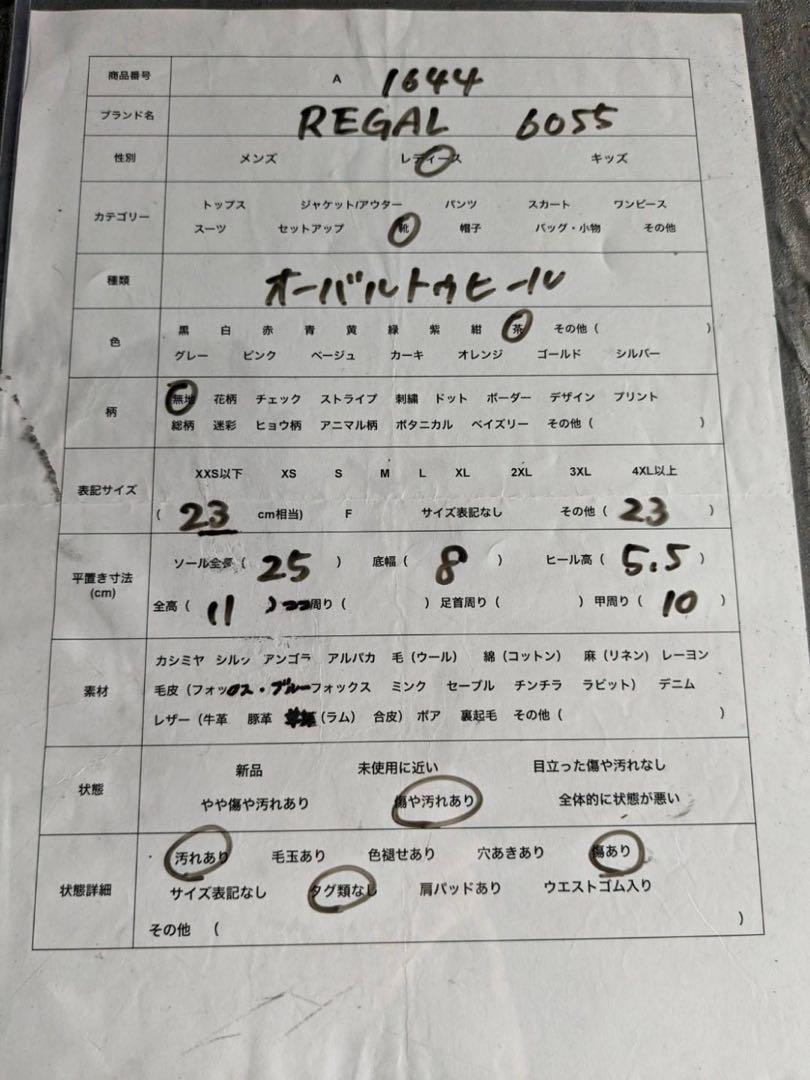 商品番号 A 1644
ブランド名 REGAL 6055
性別 メンズ レディース キッズ
カテゴリー トップス ジャケット/アウター パンツ スカート ワンピース
スーツ セットアップ 靴 帽子 バッグ・小物 その他
種類 オーバルトゥヒール
色 黒 白 赤 青 黄 緑 紫 紺 茶 その他( )
グレー ピンク ベージュ カーキ オレンジ ゴールド シルバー
柄 無地 花柄 チェック ストライプ 刺繍 ドット ボーダー デザイン プリント
総柄 迷彩 ヒョウ柄 アニマル柄 ボタニカル ペイズリー その他( )
表記サイズ XXS以下 XS S M L XL 2XL 3XL 4XL以上
( 23 cm相当) F サイズ表記なし その他( 23 )
平置き寸法 (cm) ソール全長( 25 ) 底幅( 8 ) ヒール高( 5.5 )
全高( 11 ) 周り( ) 足首周り( ) 甲周り( 10 )
素材 カシミヤ シルク アンゴラ アルパカ 毛(ウール) 綿(コットン) 麻(リネン) レーヨン
毛皮(フォックス・ブルーフォックス ミンク セーブル チンチラ ラビット) デニム
レザー(牛革 豚革 (ラム) 合皮) ボア 裏起毛 その他( )
状態 新品 未使用に近い 目立った傷や汚れなし
やや傷や汚れあり 傷や汚れあり 全体的に状態が悪い
状態詳細 汚れあり 毛玉あり 色褪せあり 穴あきあり 傷あり
サイズ表記なし タグ類なし 肩パッドあり ウエストゴム入り
その他 ( )